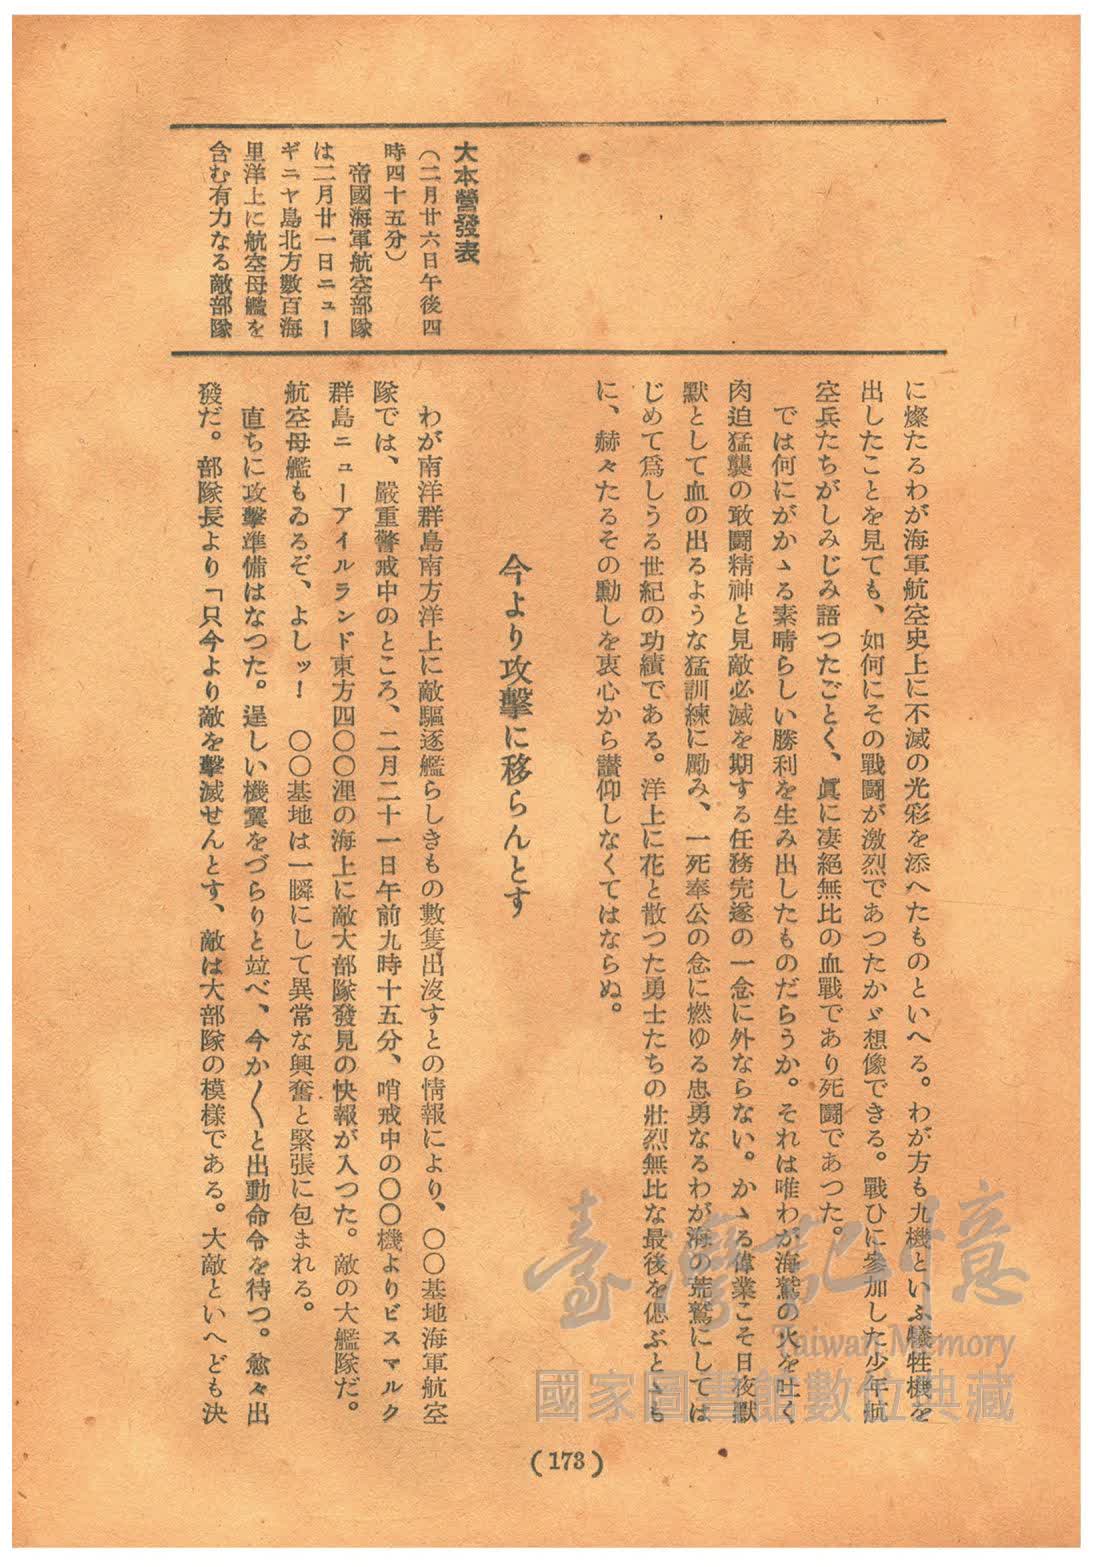 大本營發表
（二月廿六日午後四
時四十五分）
帝國海軍航空部隊
は二月廿一日ニュー
ギニヤ島北方數百海
里洋上に航空母艦を
含む有力なる敵部隊
に燦たるわが海軍航空史上に不滅の光彩を添へたものといへる。わが方も九機といふ犧牲機を
出したことを見ても、如何にその戰鬪が激烈であつたかゞ想像できる。戰ひに參加した少年航
空兵たちがしみじみ語つたごとく、眞に凄絕無比の血戰であり死鬪であつた。
では何にがかゝる素晴らしい勝利を生み出したものだらうか。それは唯わが海鷲の火を吐く
肉迫猛襲の敢鬪精神と見敵必滅を期する任務完遂の一念に外ならない。かゝる偉業こそ日夜默
默として血の出るような猛訓練に勵み、一死奉公の念に燃ゆる忠勇なるわが海の荒鷲にしては
じめて爲しうる世紀の功績である。洋上に花と散つた勇士たちの壯烈無比な最後を偲ぶとゝも
に、赫々たるその勳しを衷心から讃仰しなくてはならぬ。
今より攻擊に移らんとす
わが南洋群島南方洋上に敵驅逐艦らしきもの數隻出沒すとの情報により、〇〇基地海軍航空
隊では、嚴重警戒中のところ、二月二十一日午前九時十五分、哨戒中の〇〇機よりビスマルク
群島ニューアイルランド東方四〇〇浬の海上に敵大部隊發見の快報が入つた。敵の大艦隊だ。
航空母艦もゐるぞ、よしッ！　〇〇基地は一瞬にして異常な興奮と緊張に包まれる。
直ちに攻擊準備はなつた。逞しい機翼をづらりと竝べ、今か〱と出動命令を待つ。愈々出
發だ。部隊長より「只今より敵を擊滅せんとす、敵は大部隊の模樣である。大敵といへども決
(173)
臺灣記憶
Taiwan Memory
國家圖書館數位典藏